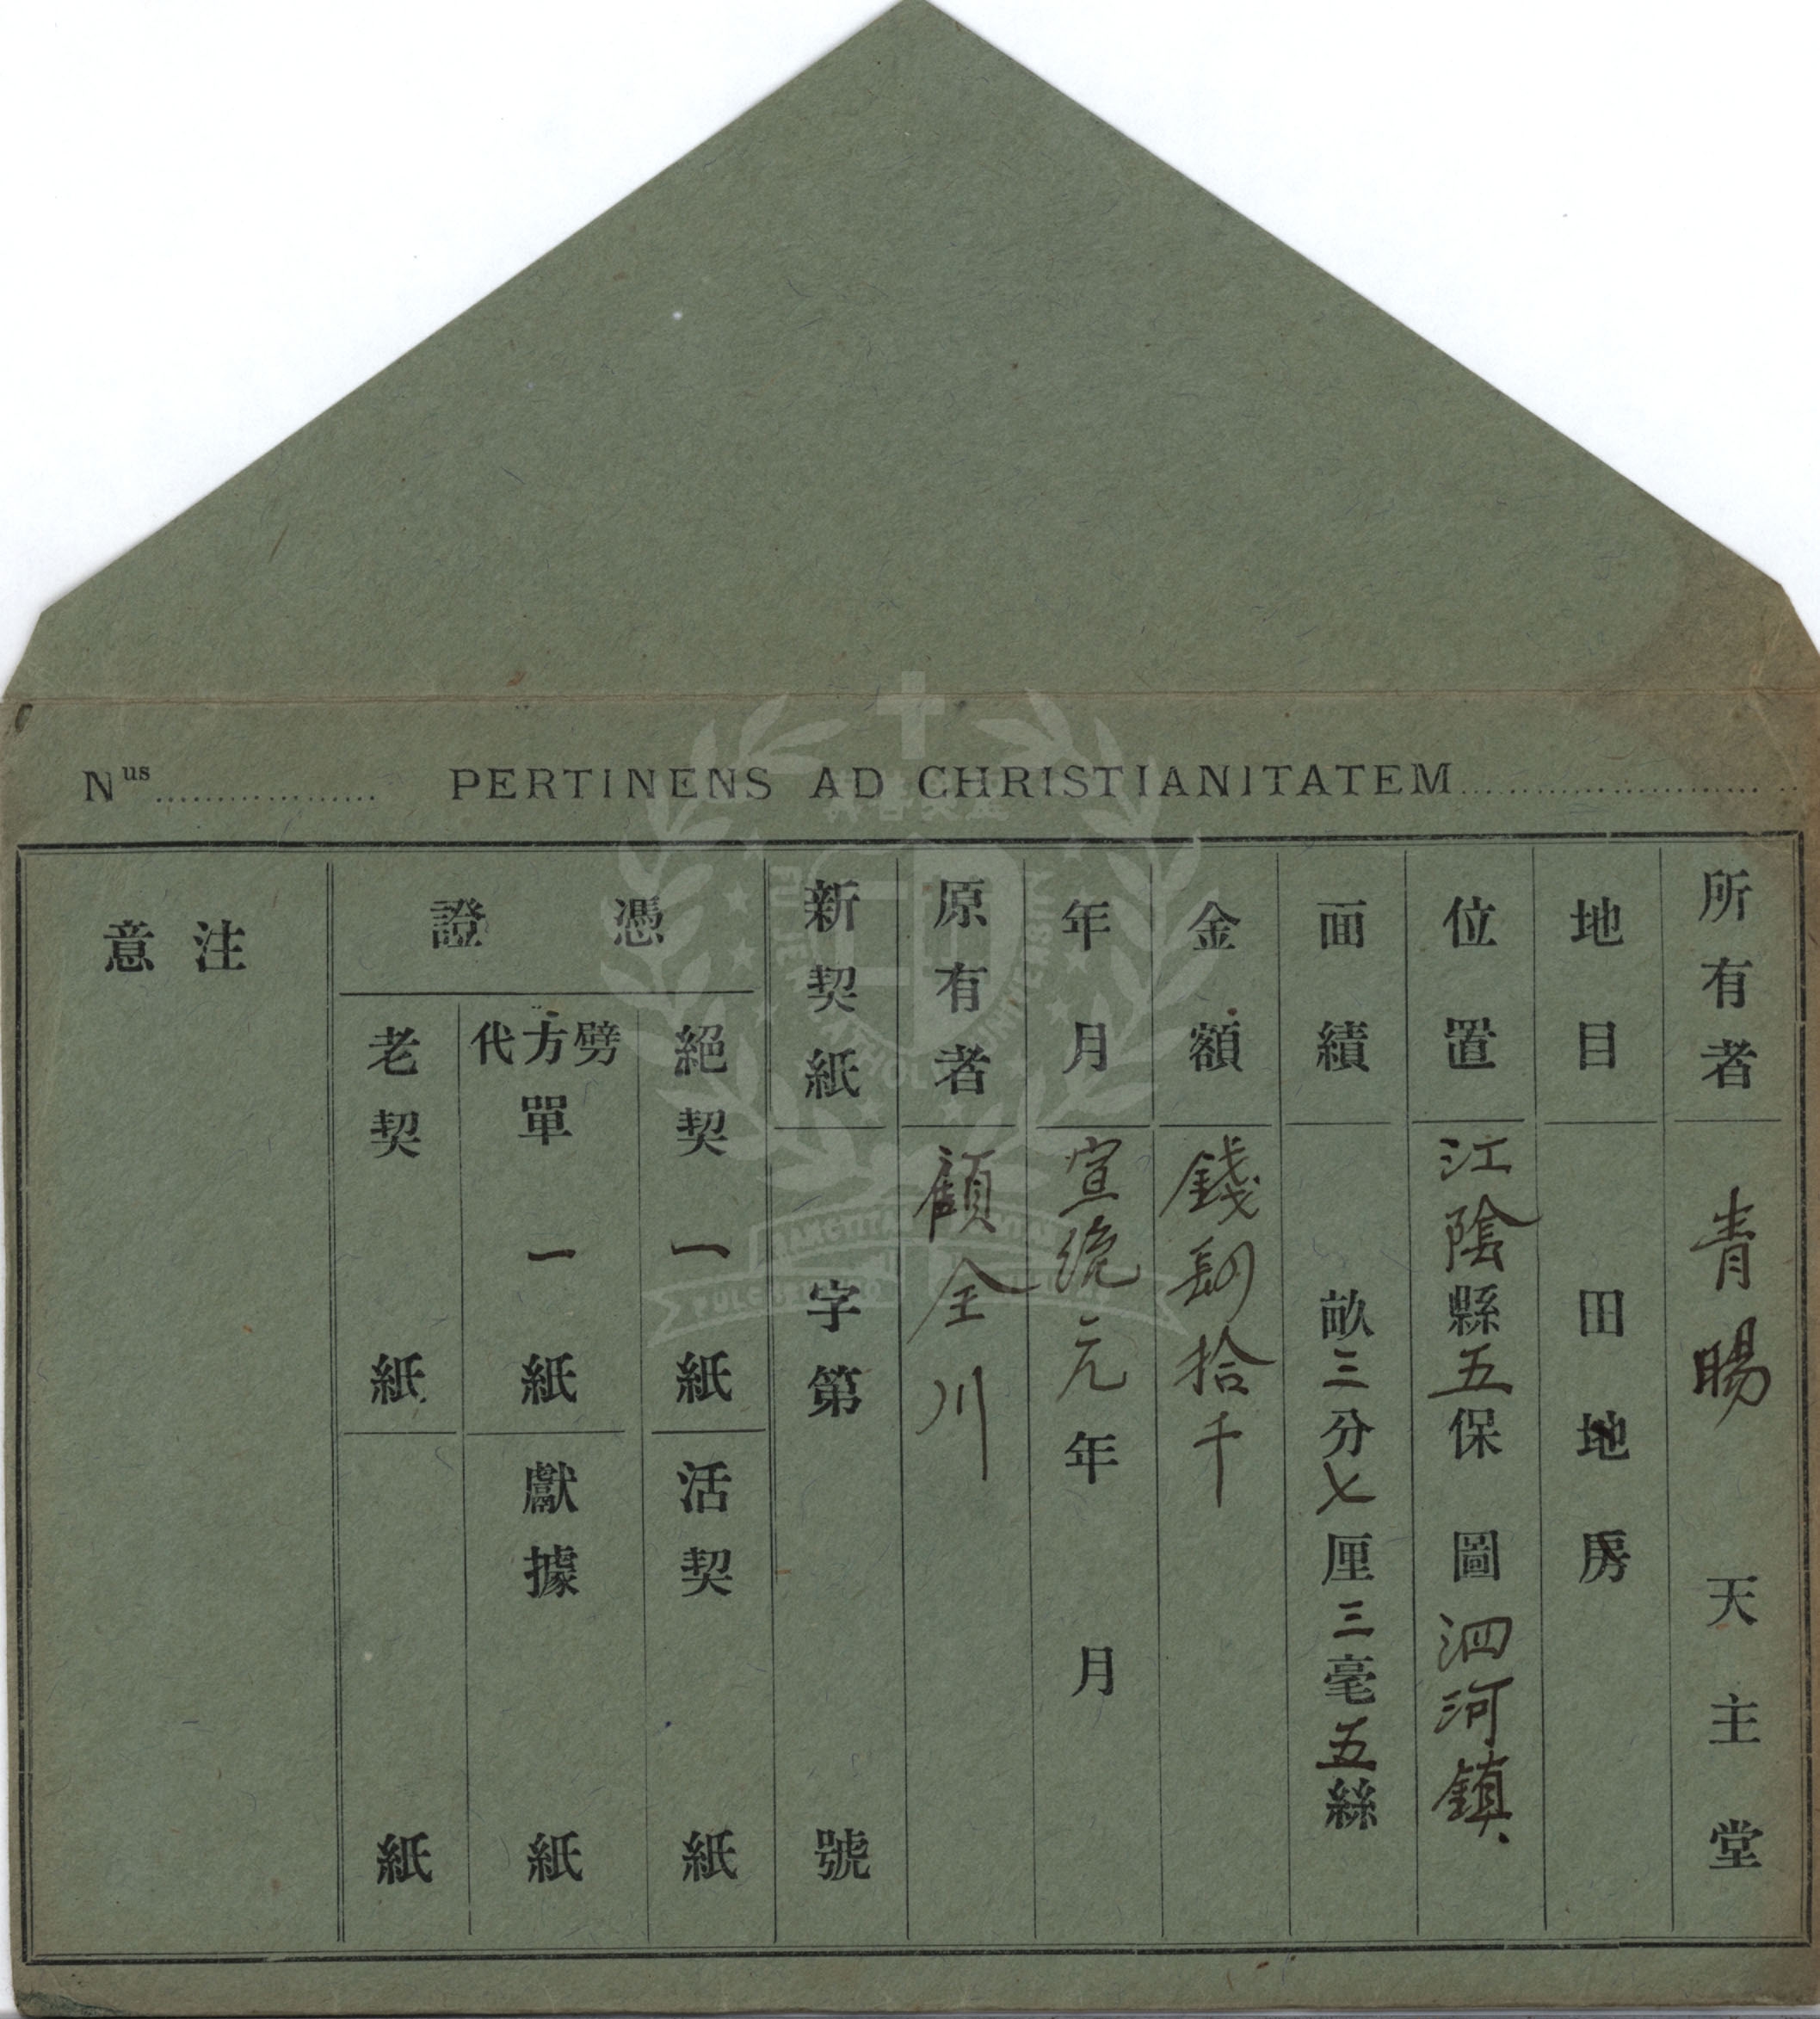 Nus PERTINENS AD CHRISTIANITATEM
所有者 青暘 天主堂
地目 田地房
位置 江陰縣五保圖泗河鎮
面績 畝三分七厘三毫五絲
金額 錢 拾千
年月 宣統元年月
原有者 顧全川
新契紙 字第號
憑證
絕契一紙 活契紙
劈方代單一紙 獻據紙
老契紙 紙
注意